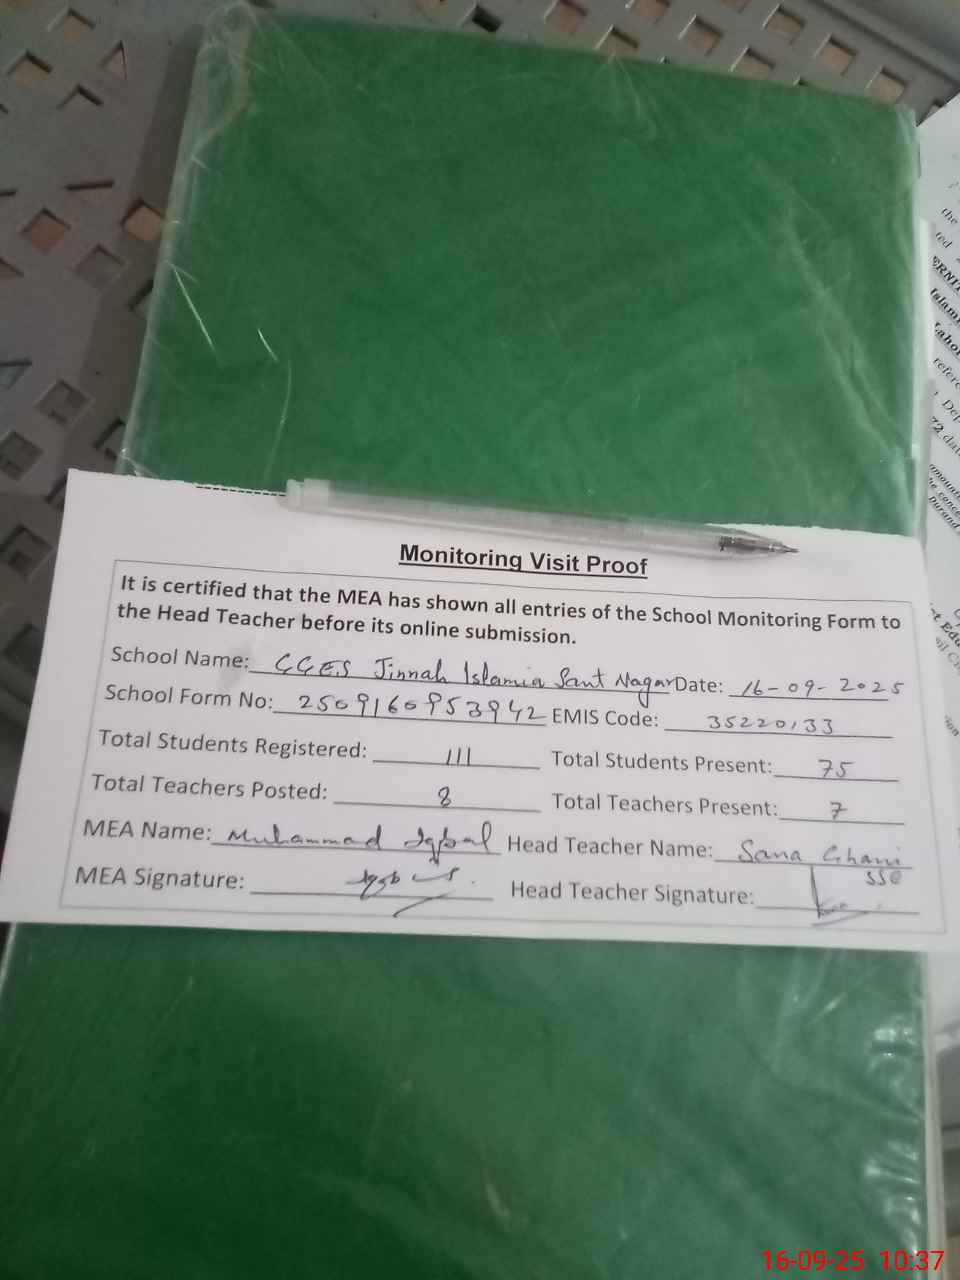 Monitoring Visit Proof
It is certified that the MEA has shown all entries of the School Monitoring Form to
the Head Teacher before its online submission.
School Name: GGES Jinnah Islamia Sant Nagar Date: 16-09-2025
School Form No: 2509160953942 EMIS Code: 35220133
Total Students Registered: 111 Total Students Present: 75
Total Teachers Posted: 8 Total Teachers Present: 7
MEA Name: Muhammad Iqbal Head Teacher Name: Sana Ghani
SSE
MEA Signature: Head Teacher Signature:
the
ted
ERNI
Islam
Lahor
refere
Dep
72 dat
amount
he conce
purand
16-09-25 10:37